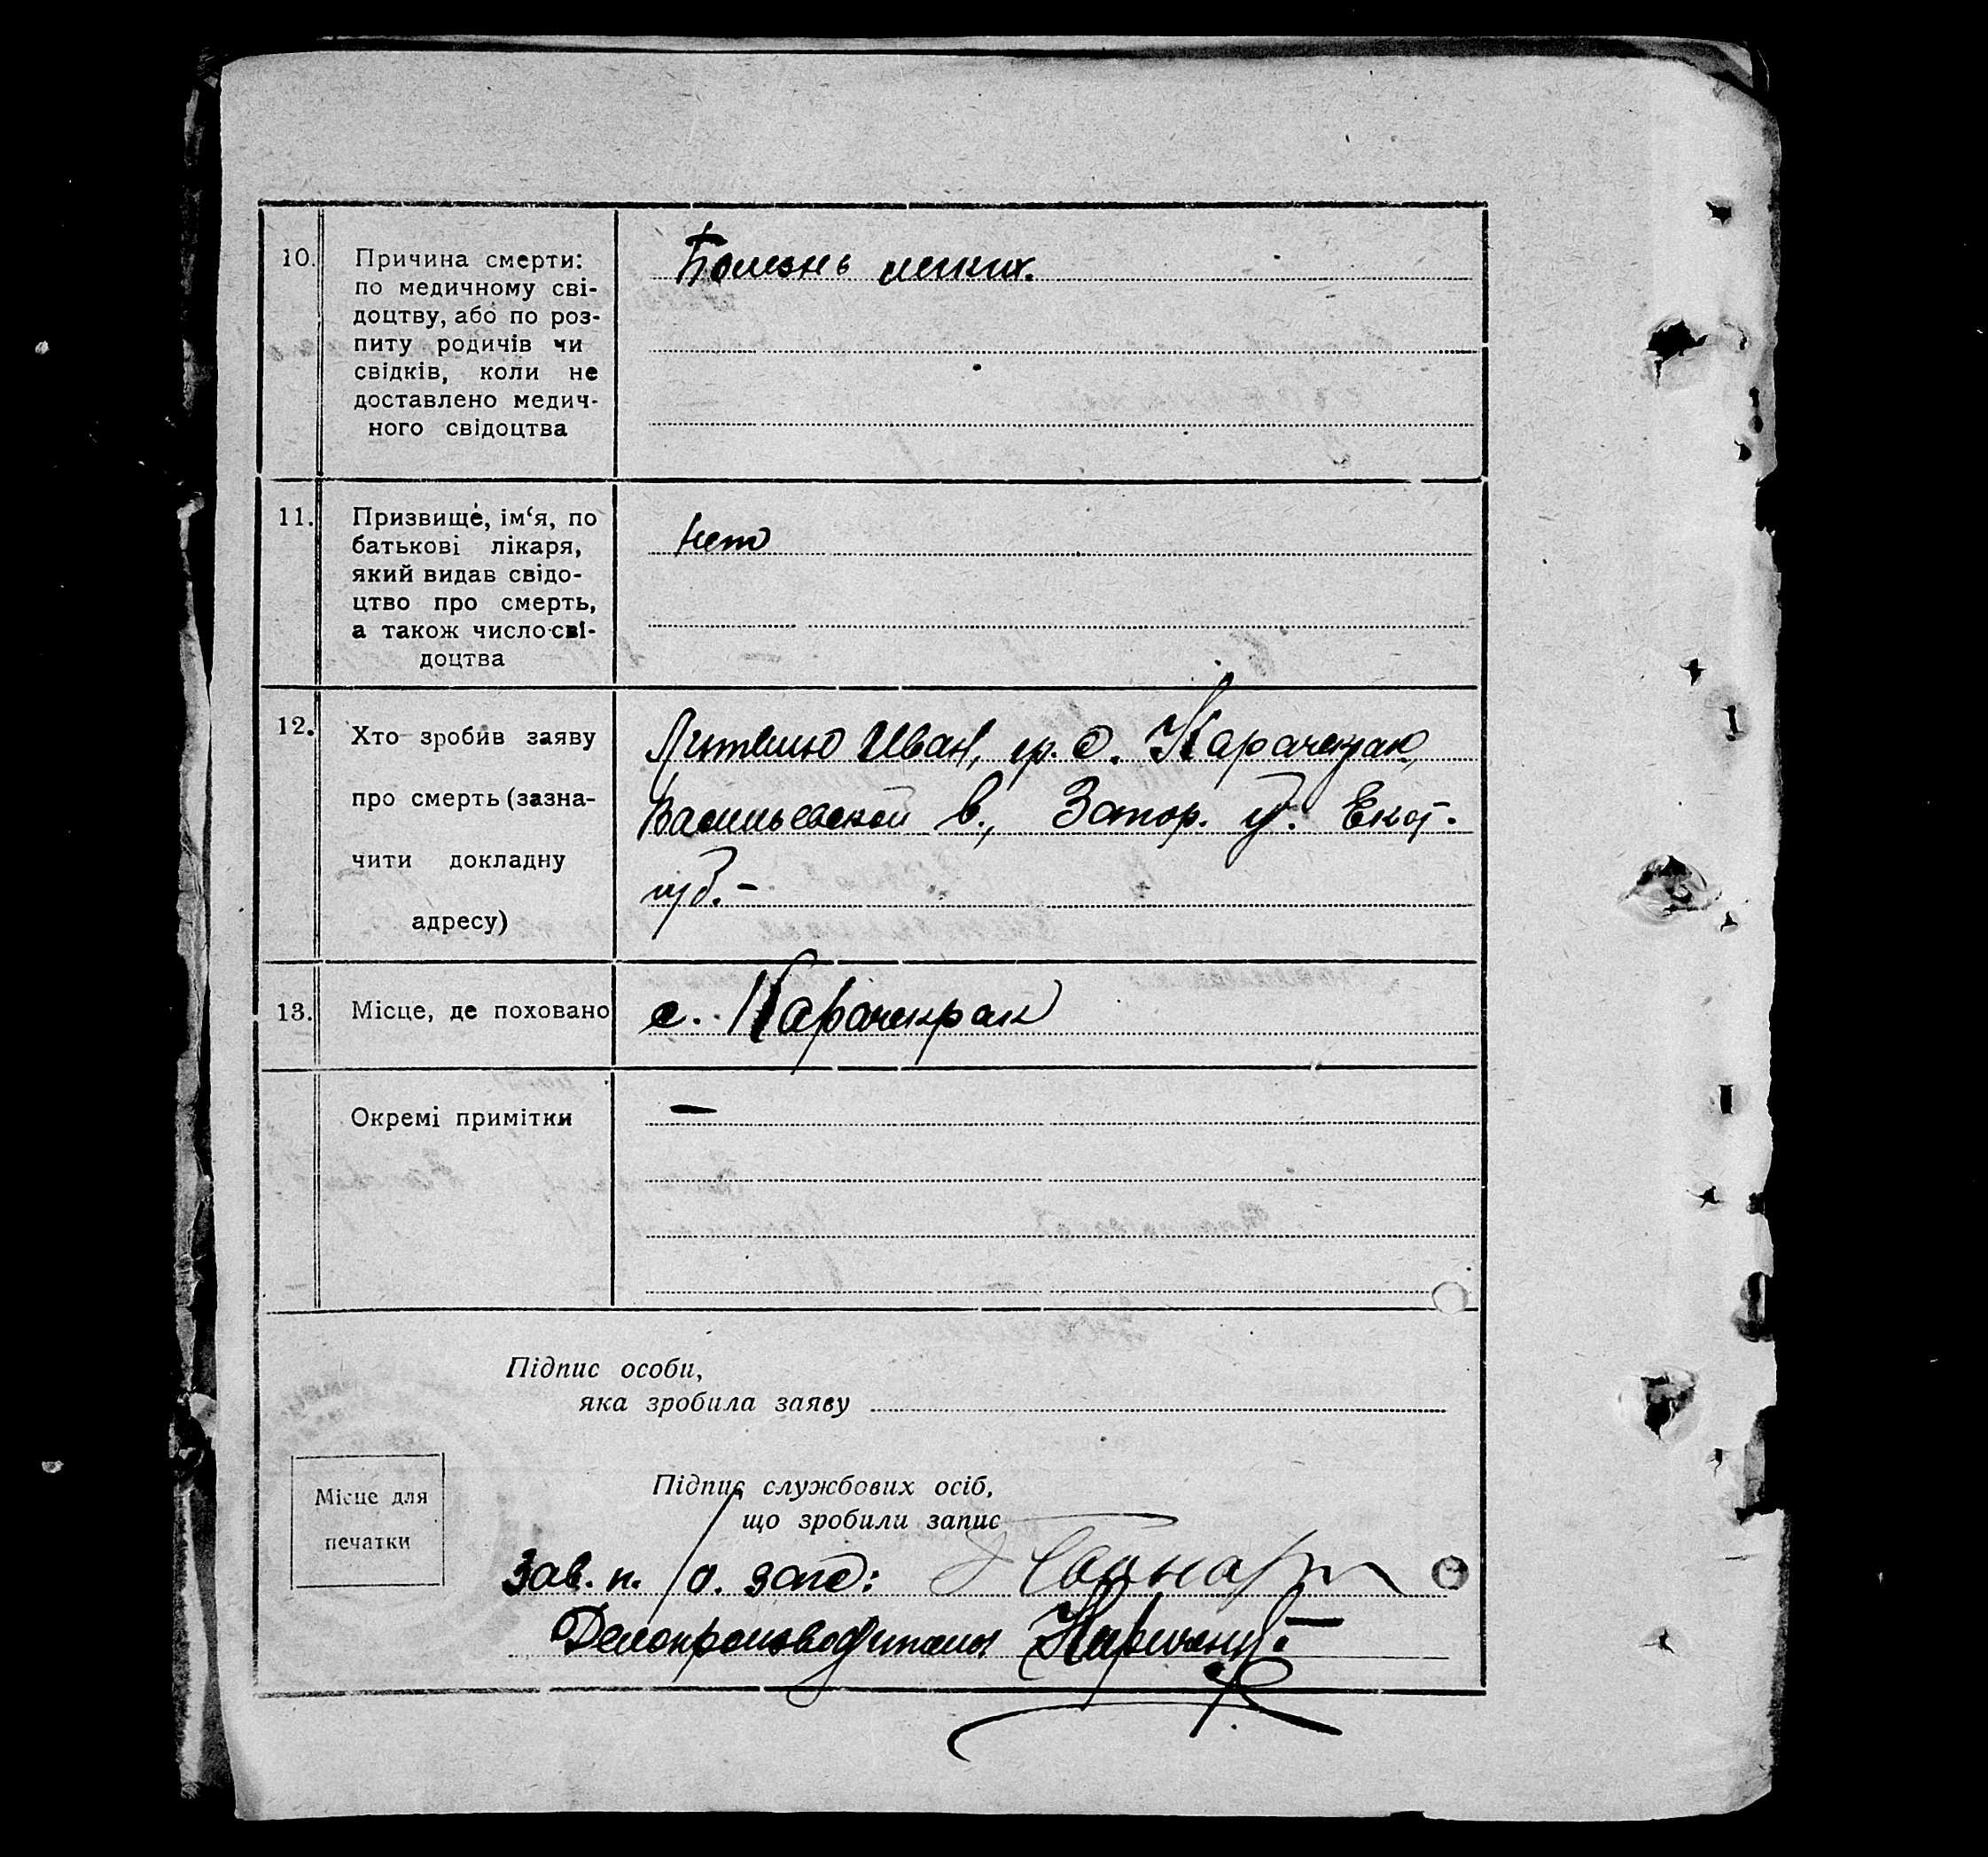 10.
Причина смерти:
по медичному сві-
доцтву, або по роз-
питу родичів чи
свідків, коли не
доставлено медич-
ного свідоцтва
Болезнь легких.
11.
Призвище, ім‘я, по
батькові лікаря,
який видав свідо-
цтво про смерть,
а також число сві-
доцтва
нет
12.
Хто зробив заяву
про смерть (зазна-
чити докладну
адресу)
Иван, гр. с.
Васильевской в., Запор. у. Екат.
губ.-
13.
Місце, де поховано
с. Карачекрак
Окремі примітки
—
Підпис особи,
яка зробила заяву
Підпис службових осіб,
що зробили запис
Місце для
печатки
Зав. п./о. загс:
Делопроизводитель